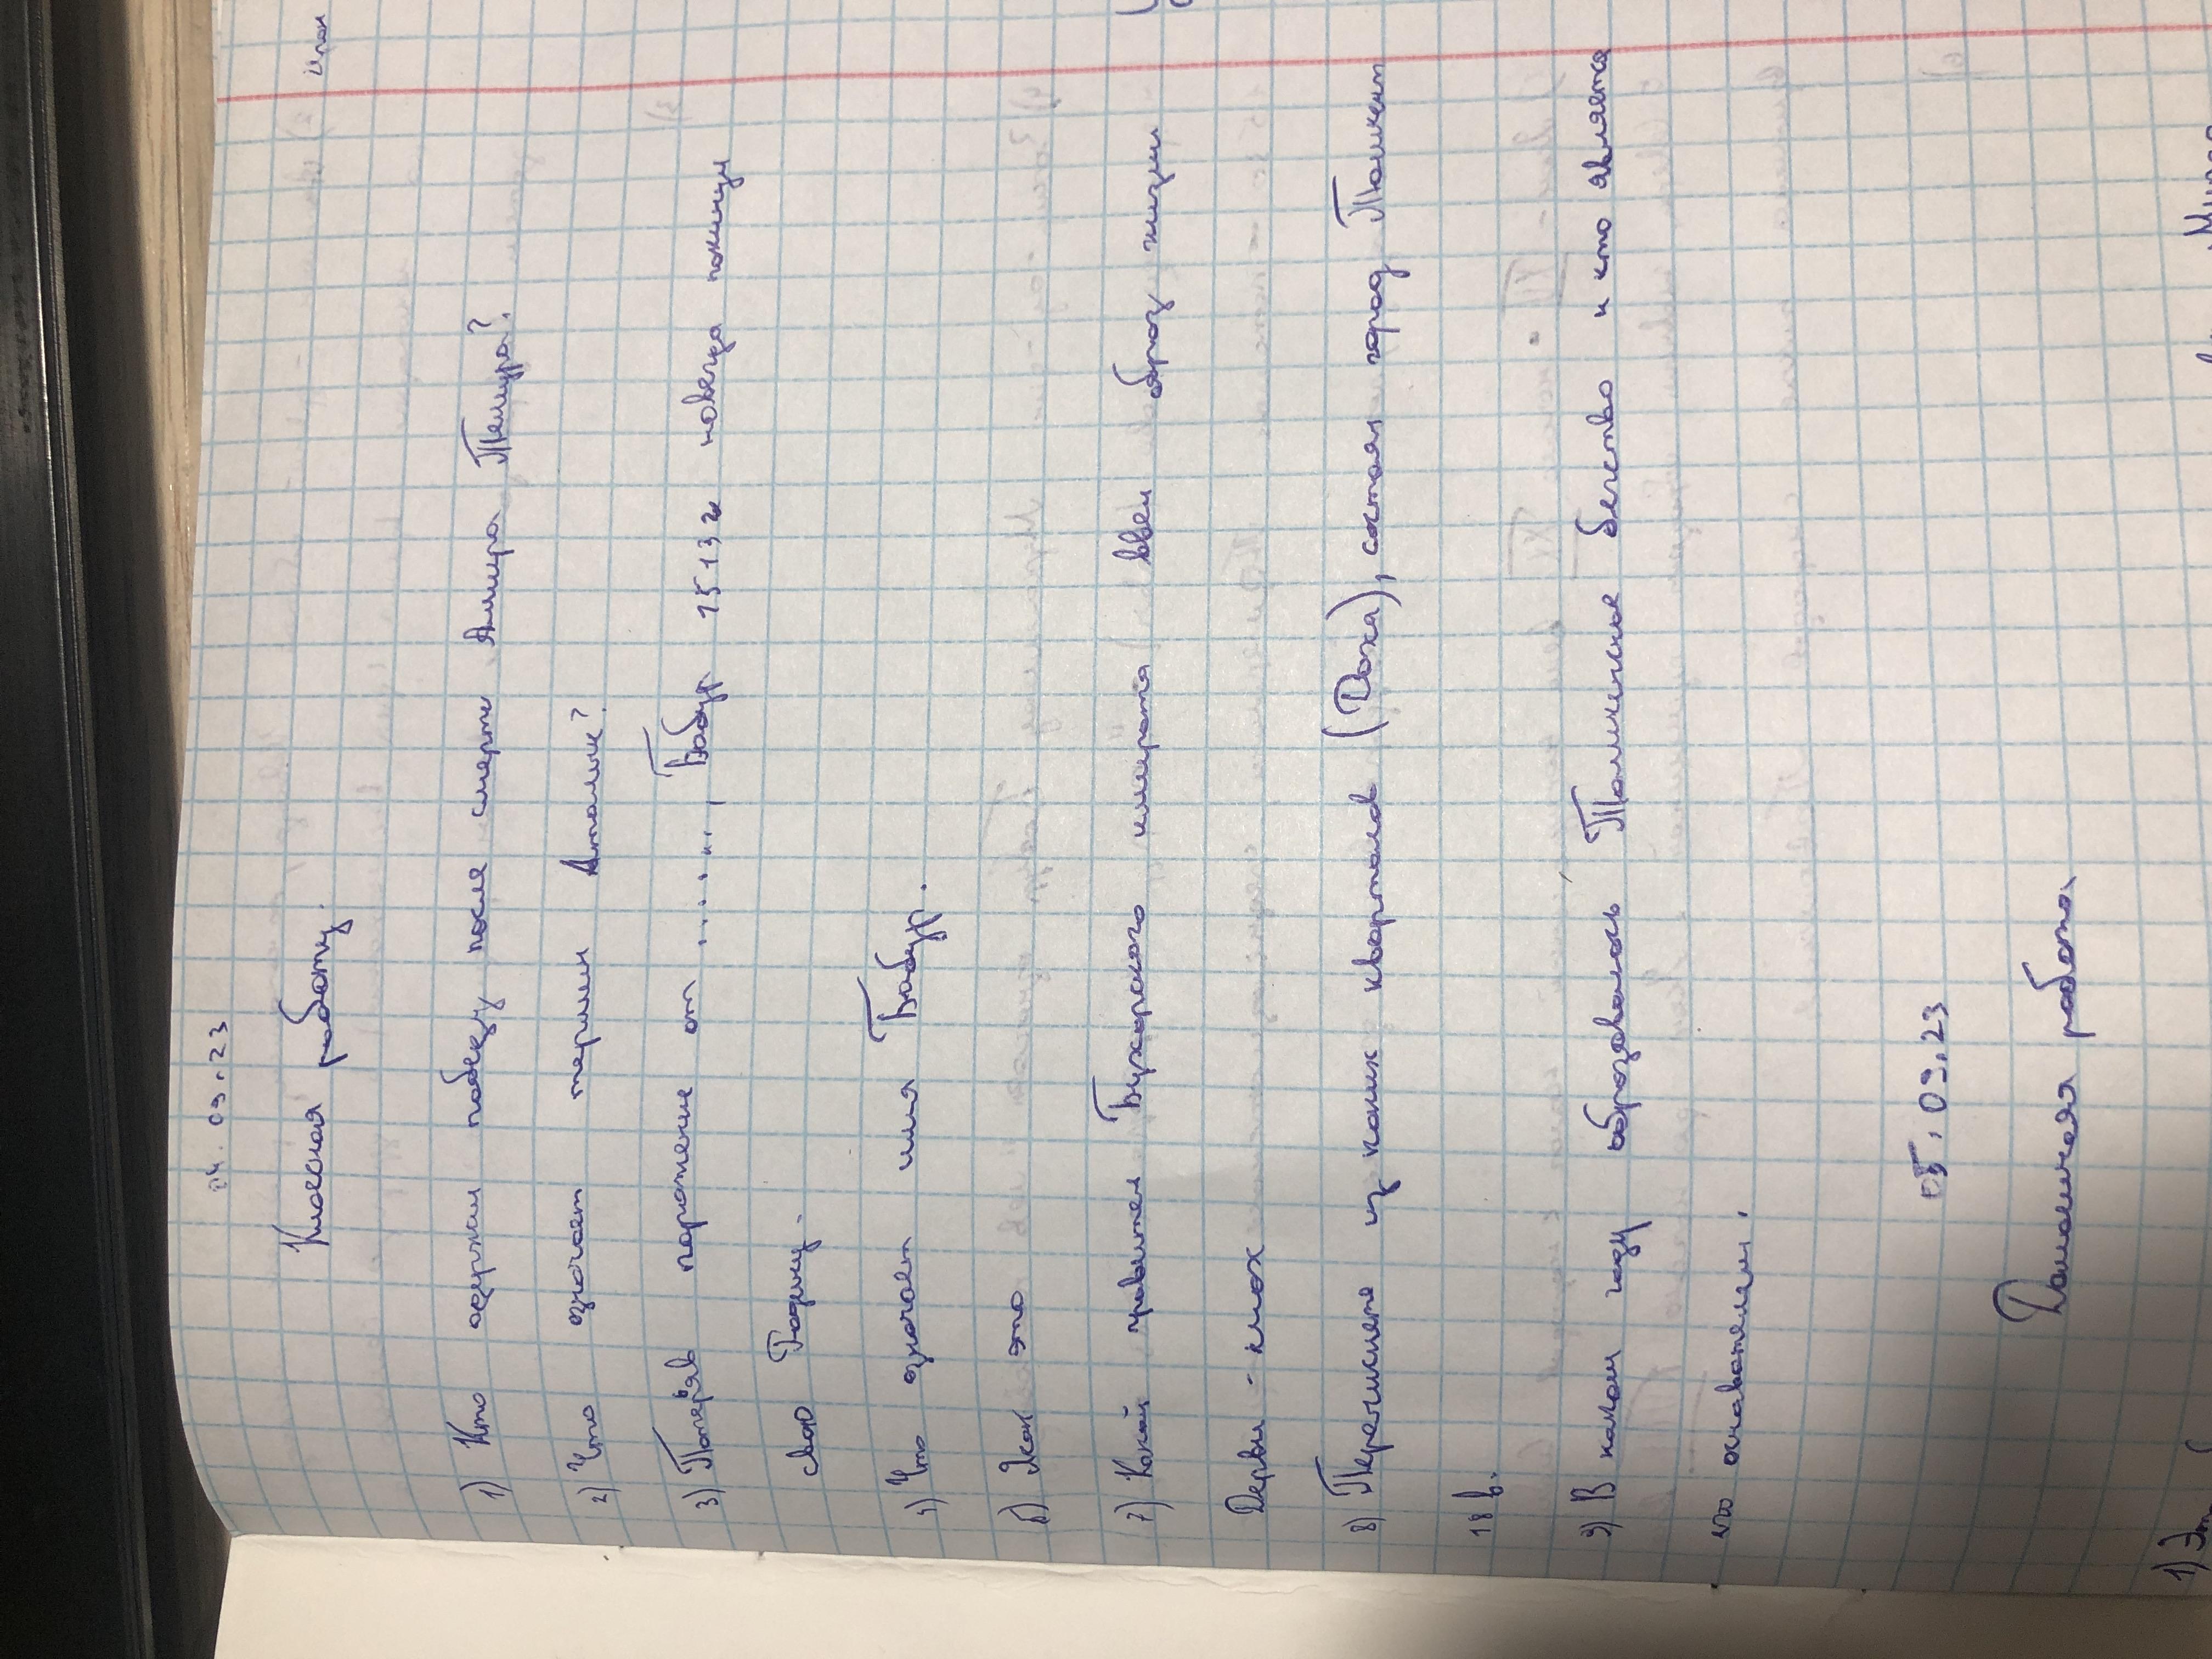 04.09.23
Классная работу.
1) Кто одержал победу после смерти Амира Темура?
2) Что означает термин Аталык?
3) Потеряв поражение от ......, Бабур 1513 г навсегда покинул
свою Родину.
4) Что означает имя Бабур.
6) Яхак это
7) Какой правител Бухарского эмирата ввел образ жизни
Дервиш - клих
8) Перечислите из каких кварталов (Доха), состоял город Ташкент
18 в.
9) В каком году образовалось Ташкенское бегство и кто является
его основателем.
05.09.23
Домашняя работа.
1) Эт